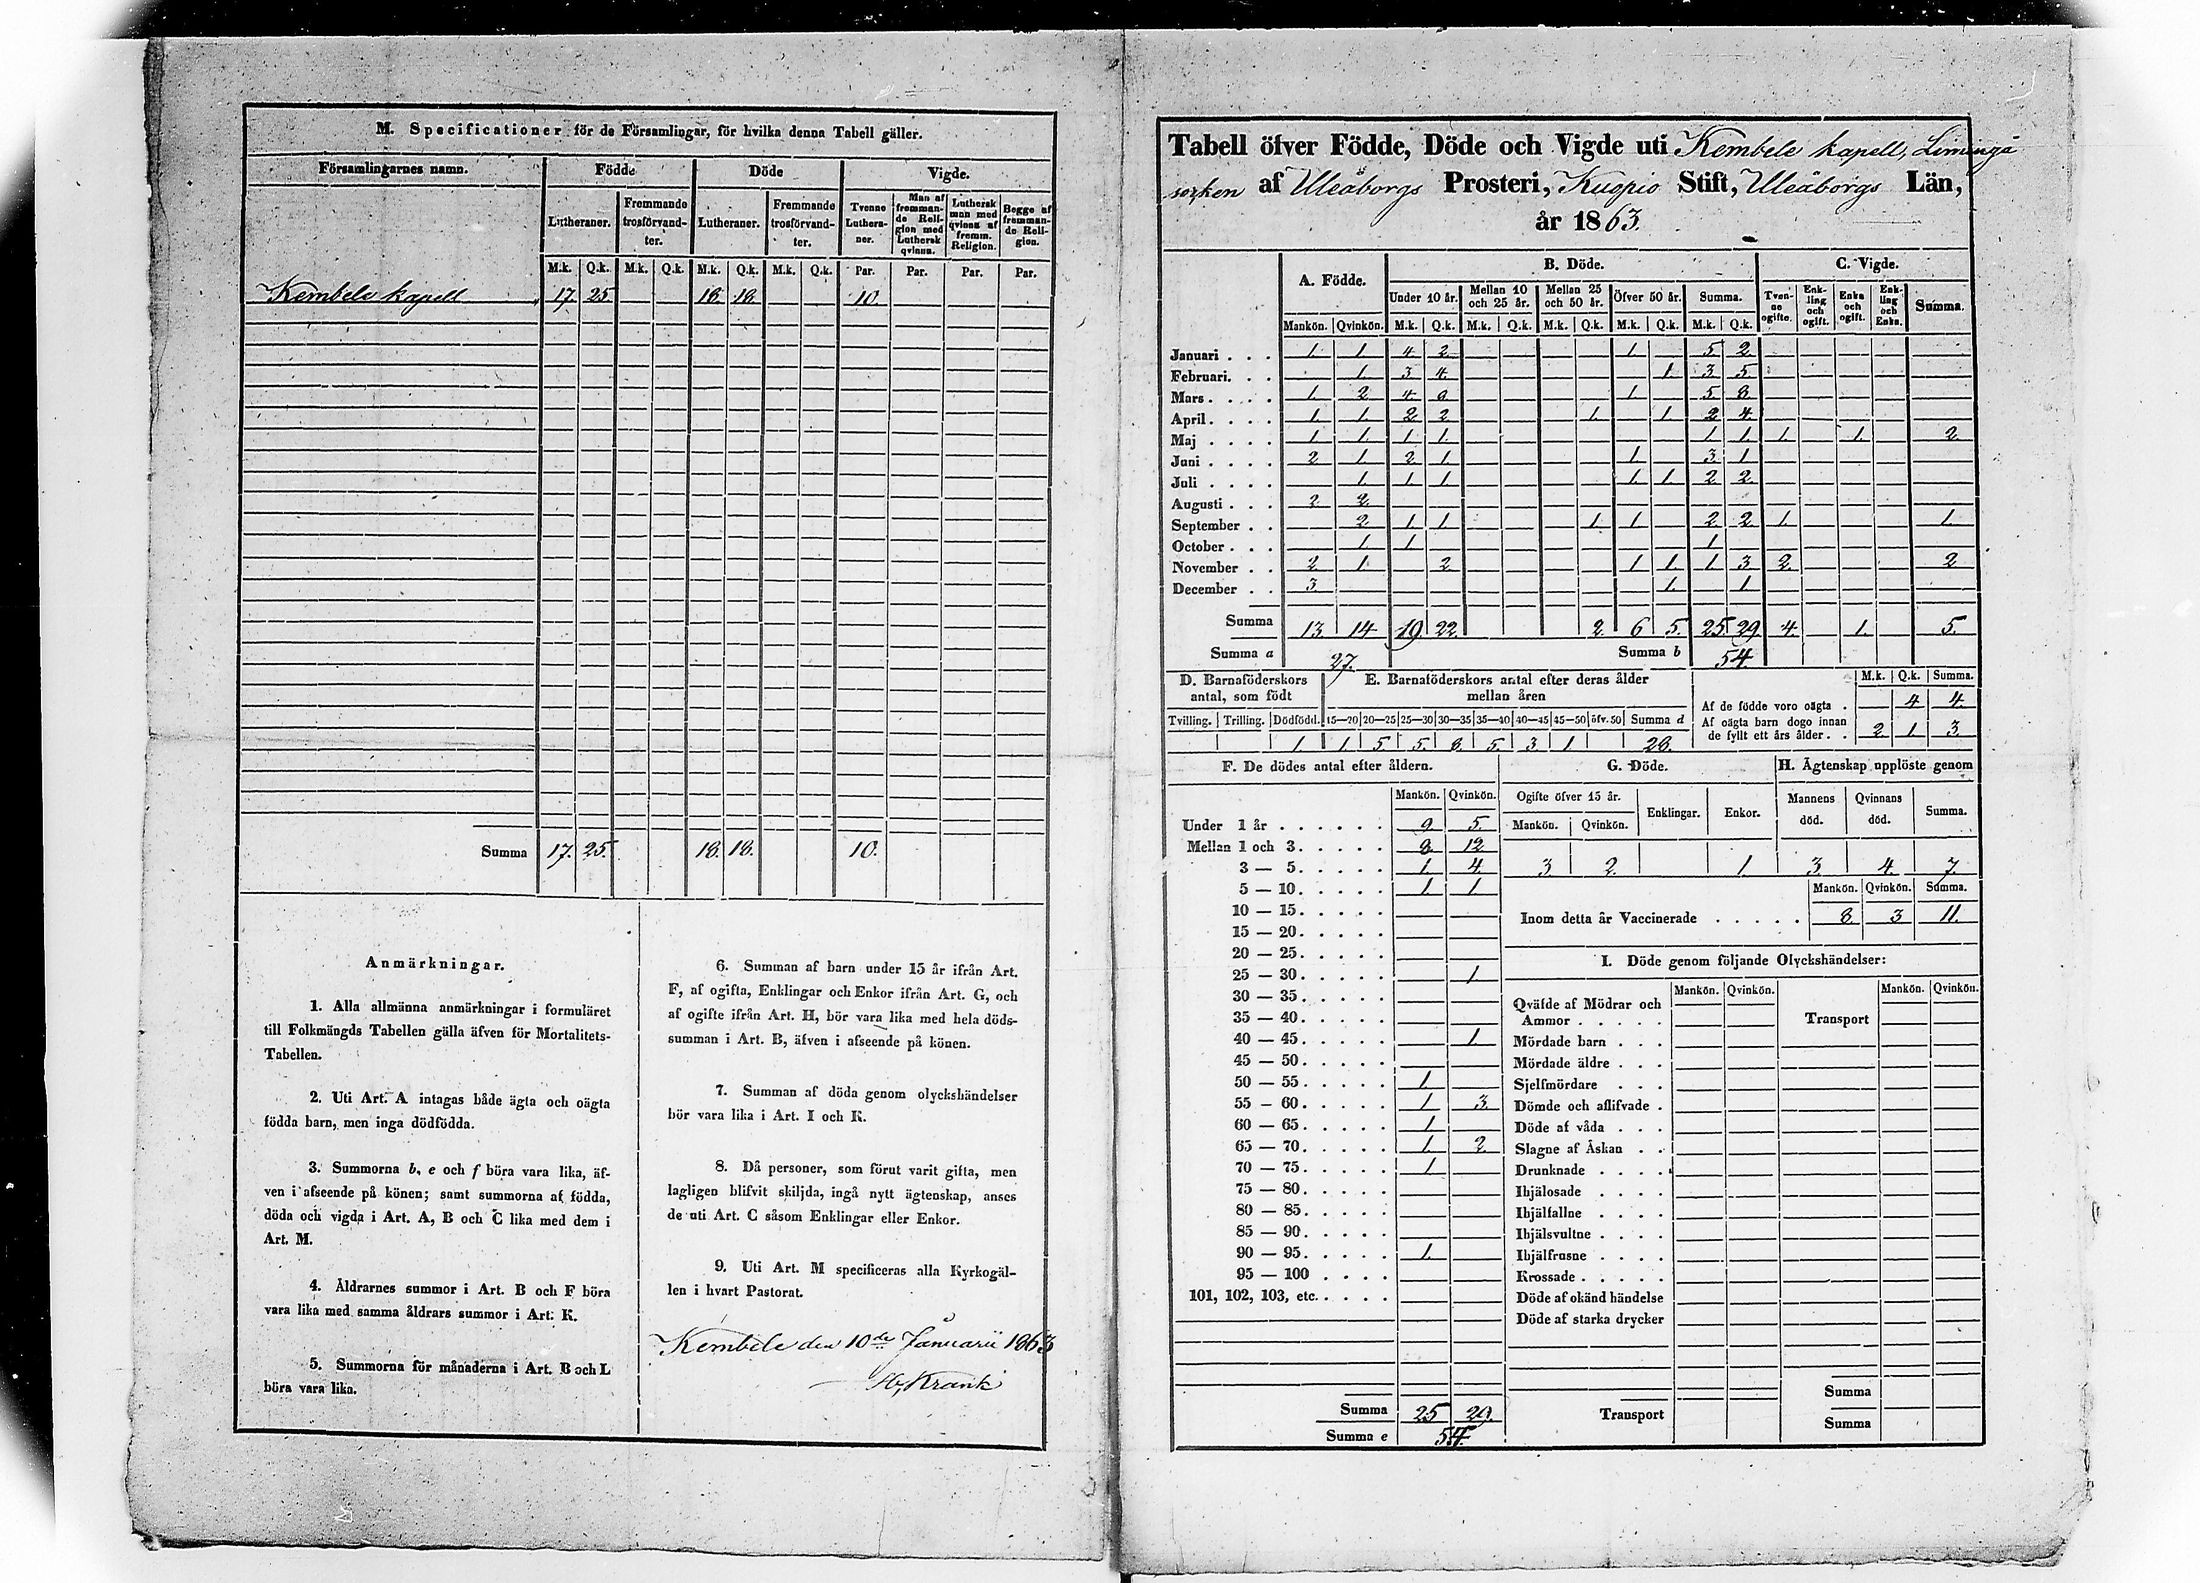 M. Specificationer för de Församlingar, för hvilka denna Tabell gäller.
Församlingarnes namn. Födde Döde Vigde.
Lutheraner. Fremmande trosförvandter. Lutheraner. Fremmande trosförvandter. Tvenne Lutheraner. Man af fremmande Religion med Luthersk qvinna. Luthersk man med qvinna af fremm. Religion. Begge af fremmande Religion.
M.k. Q.k. M.k. Q.k. M.k. Q.k. M.k. Q.k. Par. Par. Par. Par.
Kembele kapell 17. 25 18. 18. 10.
Summa 17. 25. 18. 18. 10.
Anmärkningar.
1. Alla allmänna anmärkningar i formuläret
till Folkmängds Tabellen gälla äfven för Mortalitets-
Tabellen.
2. Uti Art. A intagas både ägta och oägta
födda barn, men inga dödfödda.
3. Summorna b, e och f böra vara lika, äf-
ven i afseende på könen; samt summorna af födda,
döda och vigda i Art. A, B och C lika med dem i
Art. M.
4. Åldrarnes summor i Art. B och F böra
vara lika med samma åldrars summor i Art. K.
5. Summorna för månaderna i Art. B och L
böra vara lika.
6. Summan af barn under 15 år ifrån Art.
F, af ogifta, Enklingar och Enkor ifrån Art. G, och
af ogifte ifrån Art. H, bör vara lika med hela döds-
summan i Art. B, äfven i afseende på könen.
7. Summan af döda genom olyckshändelser
bör vara lika i Art. I och K.
8. Då personer, som förut varit gifta, men
lagligen blifvit skiljda, ingå nytt ägtenskap, anses
de uti Art. C såsom Enklingar eller Enkor.
9. Uti Art. M specificeras alla Kyrkogäl-
len i hvart Pastorat.
Kembele den 10de Januarii 1863
Krank
Tabell öfver Födde, Döde och Vigde uti Kembele kapell, Limingå
socken af Uleåborgs Prosteri, Kuopio Stift, Uleåborgs Län,
år 1863.
A. Födde. B. Döde. C. Vigde.
Under 10 år. Mellan 10 och 25 år. Mellan 25 och 50 år. Öfver 50 år. Summa. Tvenne ogifte. Enkling och ogift. Enka och ogift. Enkling och Enka. Summa.
Mankön. Qvinkön. M.k. Q.k. M.k. Q.k. M.k. Q.k. M.k. Q.k. M.k. Q.k.
Januari . . . 1. 1 4 2 1. 5 2
Februari. . . 1 3 4. 1. 3. 5
Mars . . . . 1. 2 4 1. 5 8
April . . . . 1 1. 2 2 1. 1. 2 4.
Maj . . . . 1 1. 1. 1. 1. 1. 1. 1. 2.
Juni . . . . 2 1. 2 1 1. 3. 1
Juli . . . . 1. 1. 1. 1. 1. 2 2
Augusti . . . 2 2.
September . . 2. 1. 1. 1. 1. 2. 2. 1. 1.
October . . . 1. 1. 1.
November . . 2 1. 2 1 1. 1. 3 2. 2
December . . 3. 1. 1.
Summa 13. 14 19 22. 2. 6 5. 25. 29 4. 1. 5.
Summa a 27. Summa b 54.
D. Barnaföderskors antal, som födt
Tvilling. Trilling. Dödfödd.
1.
E. Barnaföderskors antal efter deras ålder mellan åren
15—20 20—25 25—30 30—35 35—40 40—45 45—50 öfv. 50 Summa d
1. 5 5. 8. 5. 3 1 28.
M.k. Q.k. Summa.
Af de födde voro oägta . 4 4.
Af oägta barn dogo innan
de fyllt ett års ålder . . 2 1. 3.
F. De dödes antal efter åldern.
Mankön. Qvinkön.
Under 1 år . . . . . . 9 5.
Mellan 1 och 3 . . . . . 8. 12
3 — 5. . . . . 1. 4.
5 — 10. . . . . 1. 1.
10 — 15. . . . .
15 — 20. . . . .
20 — 25. . . . .
25 — 30 . . . . . 1
30 — 35. . . . .
35 — 40. . . . .
40 — 45. . . . . 1.
45 — 50. . . . .
50 — 55. . . . . 1.
55 — 60. . . . . 1 3.
60 — 65. . . . . 1.
65 — 70. . . . . 1. 2.
70 — 75. . . . . 1.
75 — 80. . . . .
80 — 85. . . . .
85 — 90. . . . .
90 — 95. . . . . 1.
95 — 100 . . . .
101, 102, 103, etc. . . . .
Summa 25 29.
Summa e 54.
G. Döde.
Ogifte öfver 15 år. Enklingar. Enkor.
Mankön. Qvinkön.
3. 2. 1.
H. Ägtenskap upplöste genom
Mannens död. Qvinnans död. Summa.
3. 4. 7.
Mankön. Qvinkön. Summa.
Inom detta år Vaccinerade . . . . . 8. 3 11.
I. Döde genom följande Olyckshändelser:
Mankön. Qvinkön. Mankön. Qvinkön.
Qväfde af Mödrar och
Ammor . . . . . Transport
Mördade barn . . .
Mördade äldre . . .
Sjelfmördare . . .
Dömde och aflifvade .
Döde af våda . . .
Slagne af Åskan . .
Drunknade . . . .
Ihjälosade . . . .
Ihjälfallne . . . .
Ihjälsvultne . . . .
Ihjälfrusne . . . .
Krossade . . . . .
Döde af okänd händelse
Döde af starka drycker
Summa
Transport Summa